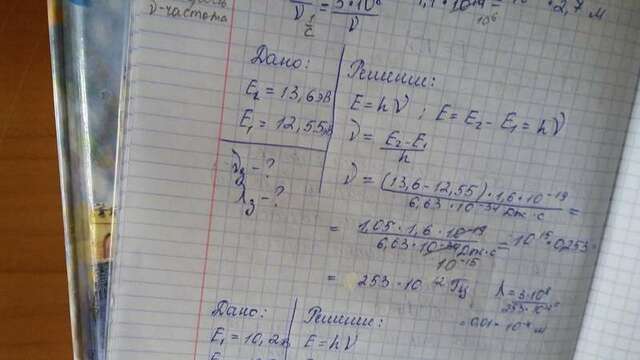 ν-частота
ν = 3·10⁸/ν
10⁶ · 2,7 м
Дано:
E₂ = 13,6эВ
E₁ = 12,55эВ
ν₃ - ?
λ₃ - ?
Решение:
E = hν ; E = E₂ - E₁ = hν
ν = (E₂-E₁)/h
ν = (13,6-12,55)·1,6·10⁻¹⁹/6,63·10⁻³⁴Дж·с =
= 1,05·1,6·10⁻¹⁹/6,63·10⁻³⁴Дж·с = 10¹⁵·0,253
10⁻¹⁵
= 253·10¹² Гц λ = 3·10⁸/253·10¹²
= 0,01·10⁻⁴ м
Дано:
E₁ = 10,2
Решение:
E = hν